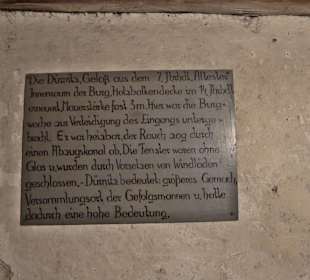 Die Dürnitz, Geloß aus dem 7. Jhrhdt. Ältester
Innenraum der Burg, Holzbalkendecke im 14. Jhrhdt.
erneuert, Mauerstärke fast 3 m. Hier war die Burg-
wache zur Verteidigung des Eingangs unterge-
bracht. Er war heizbar, der Rauch zog durch
einen Abzugskanal ab. Die Fenster waren ohne
Glas u. wurden durch Vorsetzen von Windläden
geschlossen. - Dürnitz bedeutet: größeres Gemach,
Versammlungsort der Gefolgsmannen u. hatte
dadurch eine hohe Bedeutung.